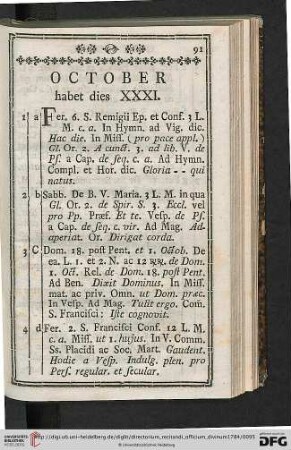 91
OCTOBER
habet dies XXXI.
1 a Fer. 6. S. Remigii Ep. et Conf. 3 L.
M. c. a. In Hymn. ad Vig. dic.
Hac die. In Miss. (pro pace appl.)
Gl. Or. 2. A cunct. 3. ad lib. V. de
Ps. a Cap. de seq. c. a. Ad Hymn.
Compl. et Hor. dic. Gloria - - qui
natus.
2. b Sabb. De B. V. Maria. 3 L. M. in qua
Gl. Or. 2. de Spir. S. 3. Eccl. vel
pro Pp. Præf. Et te. Vesp. de Ps.
a Cap. de seq. c. vir. Ad Mag. Ad-
aperiat. Or. Dirigat corda.
3 C Dom. 18. post Pent. et 1. Octob. De
ea. L. 1. et 2. N. ac 12 de Dom.
1. Oct. Rel. de Dom. 18. post Pent.
Ad Ben. Dixit Dominus. In Miss.
mat. ac priv. Omn. ut Dom. præc.
In Vesp. Ad Mag. Tulit ergo. Com.
S. Francisci: Iste cognovit.
4 d Fer. 2. S. Francisci Conf. 12 L. M.
c. a. Miss. ut 1. hujus. In V. Comm.
Ss. Placidi ac Soc. Mart. Gaudent.
Hodie a Vesp. Indulg. plen. pro
Pers. regular. et secular.
http://digi.ub.uni-heidelberg.de/diglit/directorium_recitandi_officium_divinum1784/0095
DFG